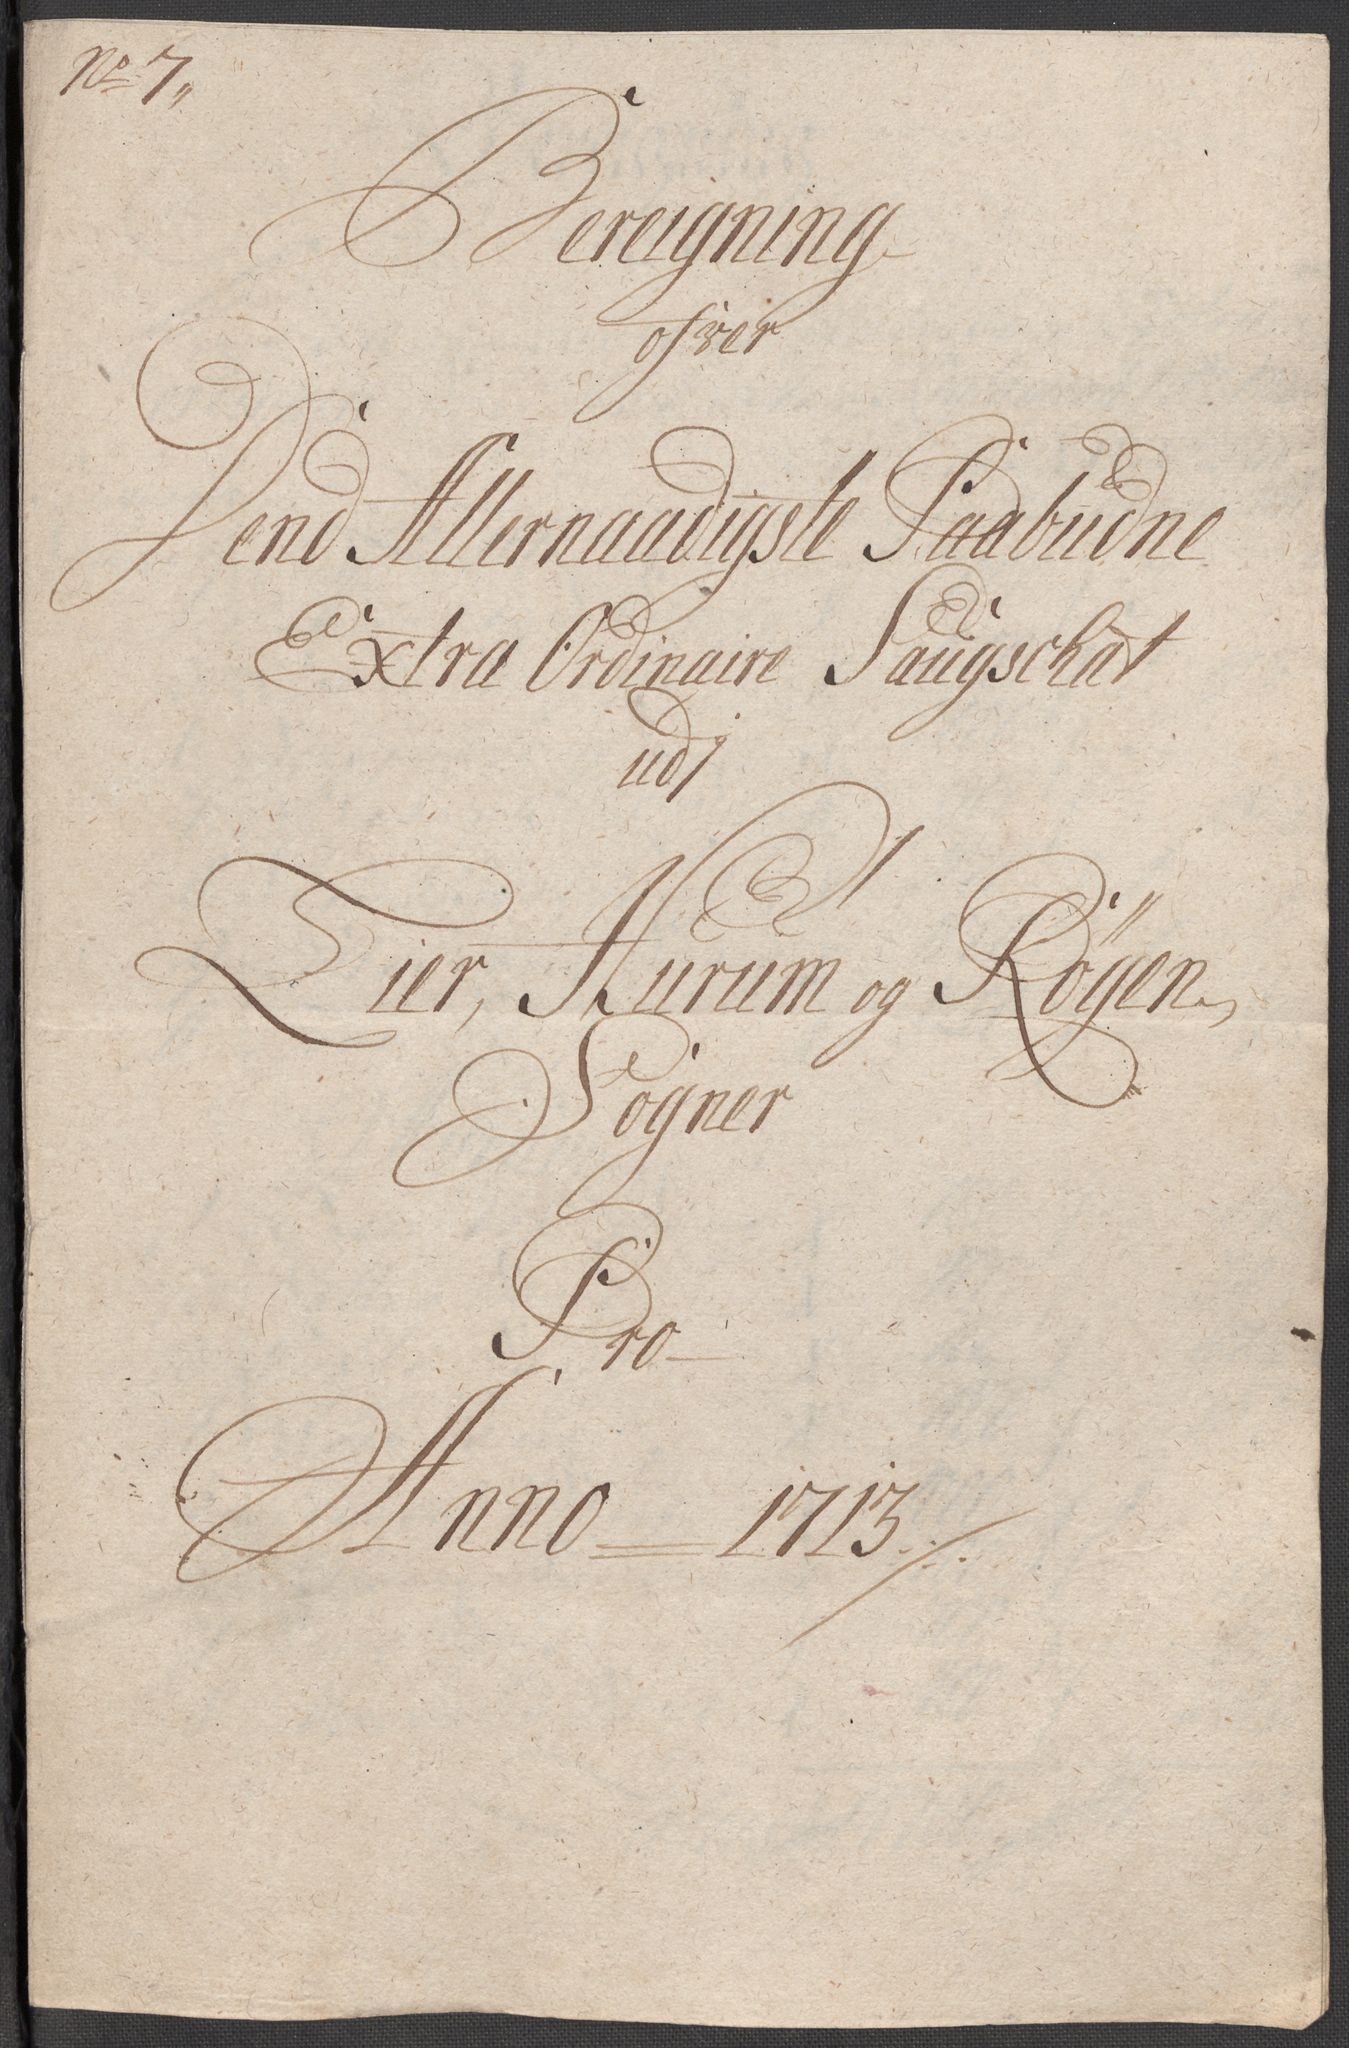 No 7,,
Bereigning
ofver
Dend Allernaadigste Paabudne
Extra Ordinaire Saugschat
udj
Lier, Hurum og Röÿen
Sogner
Pro
Anno 1713